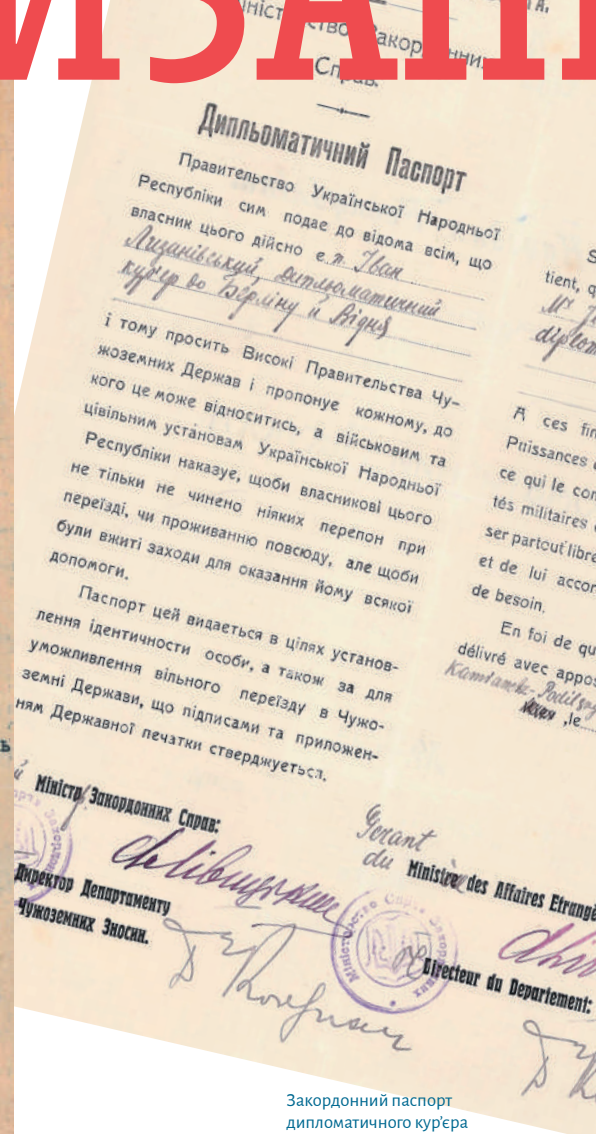 ИЗАН
Міністерство Закордонних
Справ.
Дипльоматичний Паспорт
Правительство Української Народньої
Республіки сим подає до відома всім, що
власник цього дійсно є п. Іван
Лизанівський, дипльоматичний
кур'єр до Берліну й Відня
і тому просить Високі Правительства Чу-
жоземних Держав і пропонує кожному, до
кого це може відноситись, а військовим та
цівільним установам Української Народньої
Республіки наказує, щоби власникові цього
не тільки не чинено ніяких перепон при
переїзді, чи проживанню повсюду, але щоби
були вжиті заходи для оказання йому всякої
допомоги.
Паспорт цей видається в цілях установ-
лення ідентичности особи, а також за для
уможливлення вільного переїзду в Чужо-
земні Держави, що підписами та приложен-
ням Державної печатки стверджується.
Міністр Закордонних Справ:
Директор Департаменту
Чужоземних Зносин.
S
tient, q
Mr
diplom
A ces fin
Puissances
ce qui le con
tés militaires
ser partout libre
et de lui accor
de besoin.
En foi de qu
délivré avec appos
Kamianetz-Podilsky
, le
Gerant
du Ministre des Affaires Etrangè
Directeur du Departement:
Закордонний паспорт
дипломатичного кур'єра